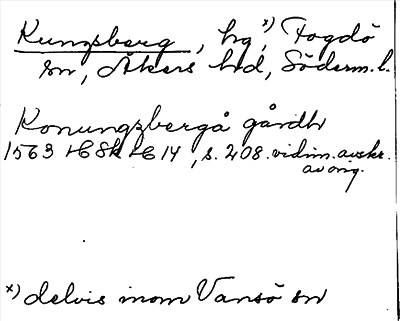 Kungsberg, hg, x) Fogdö
sn, Åkers hd, Söderm. l.
Konungzbergå gårdh
1563 HSH 14, s. 208. vidim. avskr.
av orig.
x) delvis inom Vansö sn